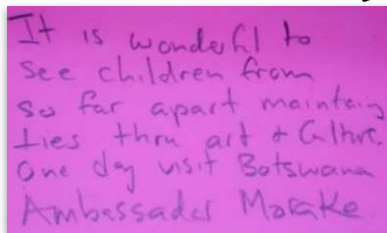 It is wonderful to
see children from
so far apart maintain
ties thru art & Culture.
One day visit Botswana
Ambassador Morake